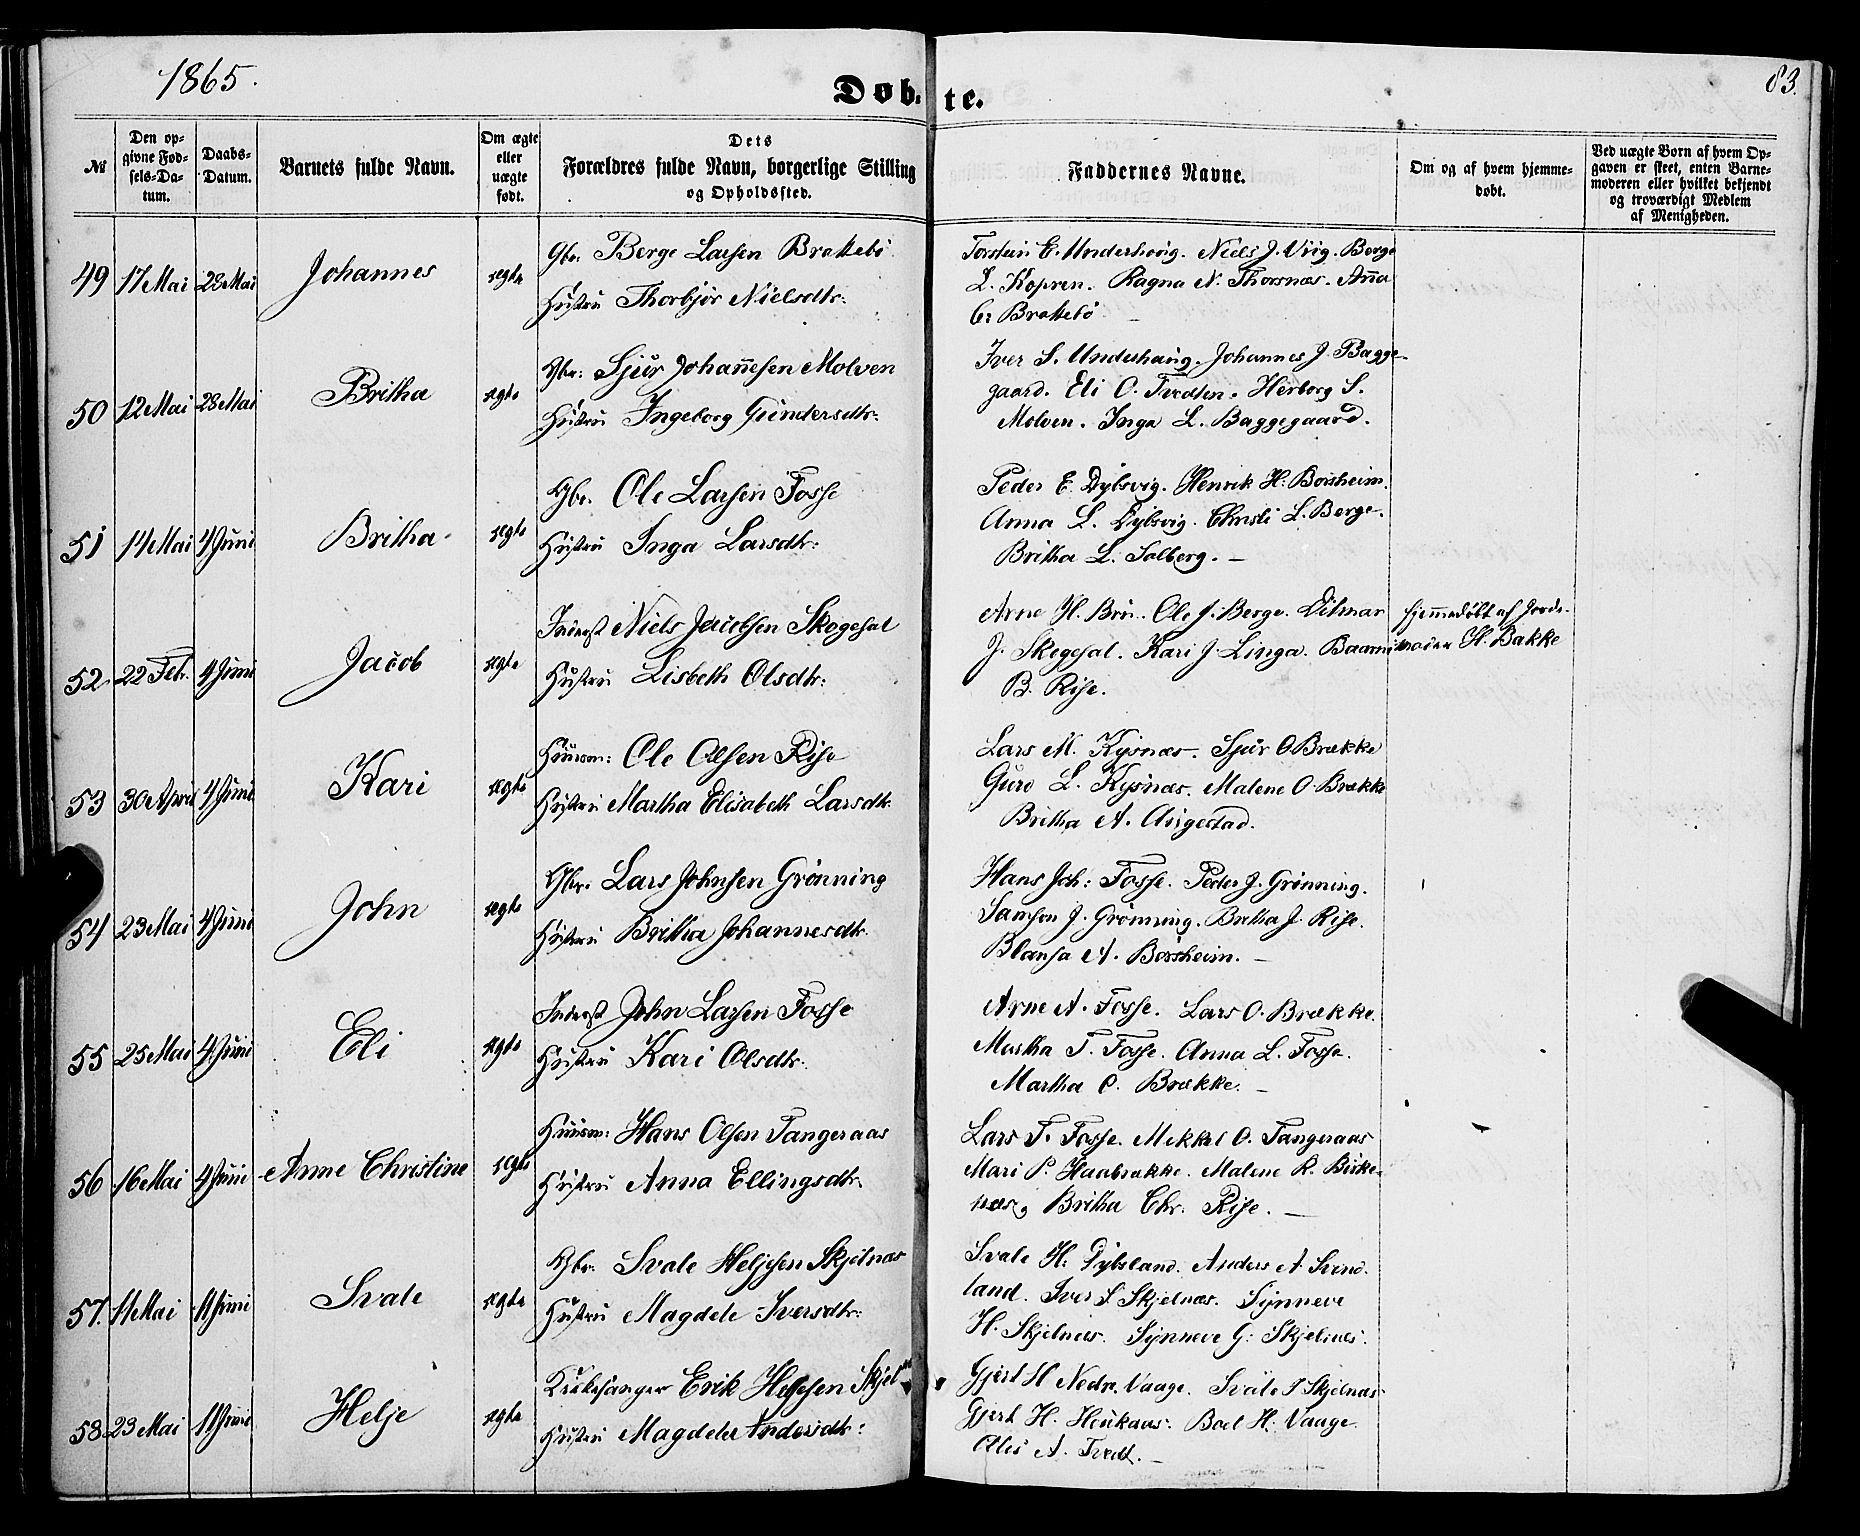 1865.
83.
Døb-te.
№
Den op-
givne Fød-
sels-Da-
tum.
Daabs-
Datum.
Barnets fulde Navn.
Om ægte
eller
uægte
født.
Dets
Forældres fulde Navn, borgerlige Stilling
og Opholdssted.
Faddernes Navne.
Om og af hvem hjemme-
døbt.
Ved uægte Børn af hvem Op-
gaven er skeet, enten Barne-
moderen eller hvilket bekjendt
og troværdigt Medlem
af Menigheden.
49 17 Mai 28 Mai Johannes ægte
Gbr. Berge Larsen Brattebø
Hustru Thorbjør Nielsdtr:
Torstein E. Underhoug. Niels J. Vrig. Børge
L. Kopren. Ragna N. Thorsnæs. Anna
Brattebø
50 12 Mai 28 Mai Britha ægte
Gbr: Sjur Johannesen Molven
Hustru Ingeborg Gundersdtr:
Iver S. Underhaug. Johannes J. Bagge-
gaard. Eli O. Tvedten. Herborg S.
Molven. Inga L. Baggegaard.
51 14 Mai 4 Juni Britha ægte
Gbr. Ole Larsen Fosse
Hustru Inga Larsdtr:
Peder E. Dybsvig. Henrik H. Borsheim.
Anna L. Dybsvig. Christi L. Berge.
Britha L. Solberg. —
52 22 Feb. 4 Juni Jacob ægte
Inderst Niels Jacobsen Skogesal
Hustru Lisbeth Olsdtr:
Arne H. Bru. Ole J. Berge. Ditmar
J. Skogesal. Kari J. Linga. Baarni
B. Rise.
Hjemmedøbt af Jorde-
moder H. Bakke
53 30 April 4 Juni Kari ægte
Huusm: Ole Olsen Rise
Hustru Martha Elisabeth Larsdtr.
Lars M. Kysnæs. Sjur O Brække
Guro L. Kysnæs. Malene O. Brække
Britha A. Augestad.
54 23 Mai 4 Juni John ægte
Gbr. Lars Johnsen Grønning
Hustru Britha Johannesdtr.
Hans Joh: Fosse. Peder J. Grønning.
Samson J. Grønning. Britha J. Rise.
Blansa A. Børsheim. —
55 25 Mai 4 Juni Eli ægte
Inderst John Larsen Fosse
Hustru Kari Olsdtr.
Arne A. Fosse. Lars O. Brække.
Martha T. Fosse. Anna L. Fosse.
Martha O. Brække. —
56 16 Mai 4 Juni Anne Christine ægte
Huusm: Hans Olsen Tangeraas
Hustru Anna Ellingsdtr.
Lars T. Fosse. Mikkel O. Tangeraas
Mari P. Haabrække. Malene R. Birke-
næs, Britha Chr. Rise. —
57. 11 Mai 11 Juni Svale ægte
Gbr. Svale Heljesen Skjelnæs
Hustru Magdele Iversdtr:
Svale H. Dybsland. Anders A Svind-
land. Iver S Skjelnæs. Synneve
H. Skjelnæs. Synneve G: Skjelnæs.
58 23 Mai 11 Juni Helje ægte
Kirkesanger Erik Heljesen Skjelnæs
Hustru Magdele Andersdtr:
Gjert H Nedre Vaage. Svale S Skjelnæs
Gjert H. Heukaas. Boel H. Vaage
A. Tvedt. —